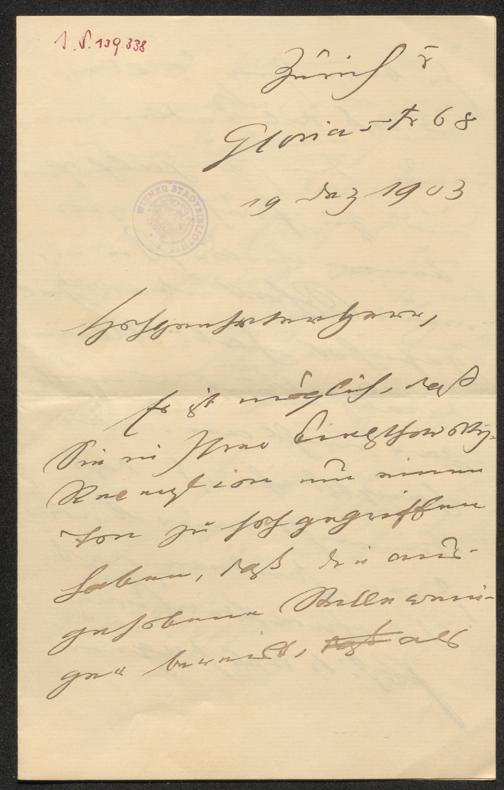 I.N. 139.338
Zürich V
Gloriastr 68
19 Dez 1903
WIENER STADTBIBLIOTHEK
Hochgeehrter Herr,
Es ist möglich, daß
Sie in Ihrer
um einen
Ton zu hoch gegriffen
haben, daß die aus-
gehobene Stelle weni-
ger beweist, daß als